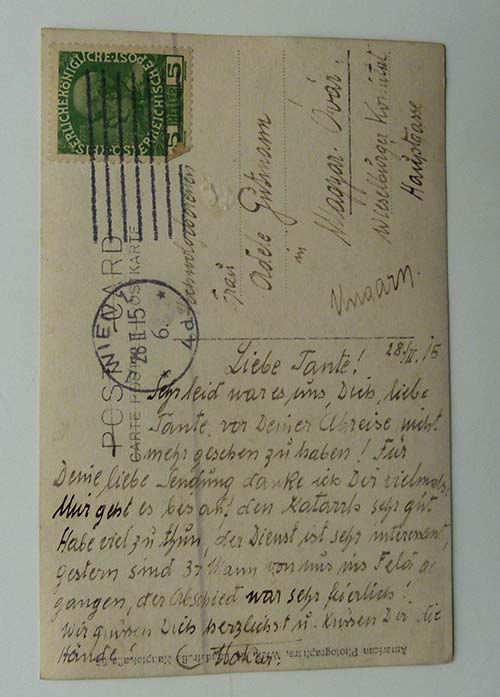 KAISERLICHE KÖNIGLICHE ÖSTERREICHISCHE POST
5 HELLER 5
POST CARD
CARTE POSTALE POSTKARTE
WIEN
28 II 15
6.
4d
Hochwohlgeboren
Frau
Adele Gutmann
in
Magyar. Óvár.
Wieselburger Komitat
Hauptgasse
Ungarn.
28/II. 15
Liebe Tante!
Sehr leid war es uns, Dich, liebe
Tante, vor Deiner Abreise, nicht
mehr gesehen zu haben! Für
Deine liebe Sendung danke ich Dir vielmals!
Mir geht es bis auf den Katarrh sehr gut
Habe viel zu thun, der Dienst ist sehr interessant,
gestern sind 37 Mann von uns ins Feld ge
gangen, der Abschied war sehr feierlich!
Wir grüssen Dich herzlichst u. küssen Dir die
Hände!
American Photographers, Wien